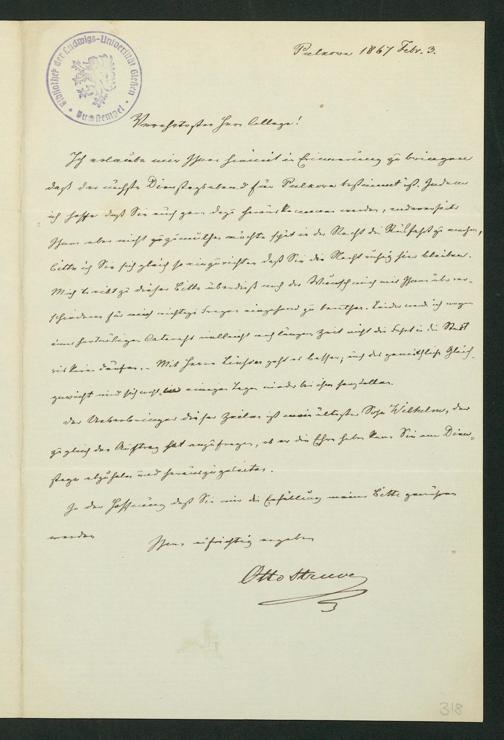 Bibliothek der Ludwigs-Universität Gießen
Pulkowa 1867 Febr. 3.
Verehrtester Herr College!
Ich erlaube mir Ihnen hiemit in Erinnerung zu bringen
daß der nächste Dienstagabend für Pulkowa bestimmt ist. Indem
ich hoffe daß Sie auch gern dazu herauskommen werden, andererseits
Ihnen aber nicht zugemuthet möchte spät in der Nacht die Rückfahrt zu machen,
bitte ich Sie sich gleich so einzurichten daß Sie die Nacht ruhig hier bleiben.
Mich treibt zu dieser Bitte überdieß noch der Wunsch mich mit Ihnen über ver-
schiedene für mich wichtige Fragen eingehend zu berathen. Leider werde ich wegen
eines hartnäckigen Catarrhs vielleicht noch längere Zeit nicht die Fahrt in die Stadt
riskiren dürfen. - Mit Herrn geht es besser, auch das gemüthliche Gleich-
gewicht wird sich wohl in einigen Tagen wieder bei ihm herstellen.
Der Ueberbringer dieser Zeilen ist mein ältester Sohn Wilhelm, der
zugleich den Auftrag hat anzufragen, ob er die Ehre haben kann Sie am Dien-
stage abzuholen und herauszugeleiten.
In der Hoffnung daß Sie mir die Erfüllung meiner Bitte gewähren
werden
Ihr aufrichtig ergebener
Otto Struve
318